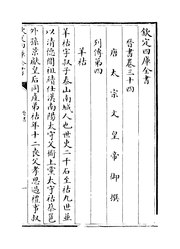 欽定四庫全書
晉書卷三十四
唐太宗文皇帝御撰
列傳第四
羊祜
羊祜字叔子泰山南城人也世吏二千石至祜九世並
以清德聞祖續仕漢南陽太守父衜上黨太守祜蔡邕
外孫景獻皇后同產弟祜年十二喪父孝思過禮事叔
欽定四庫全書